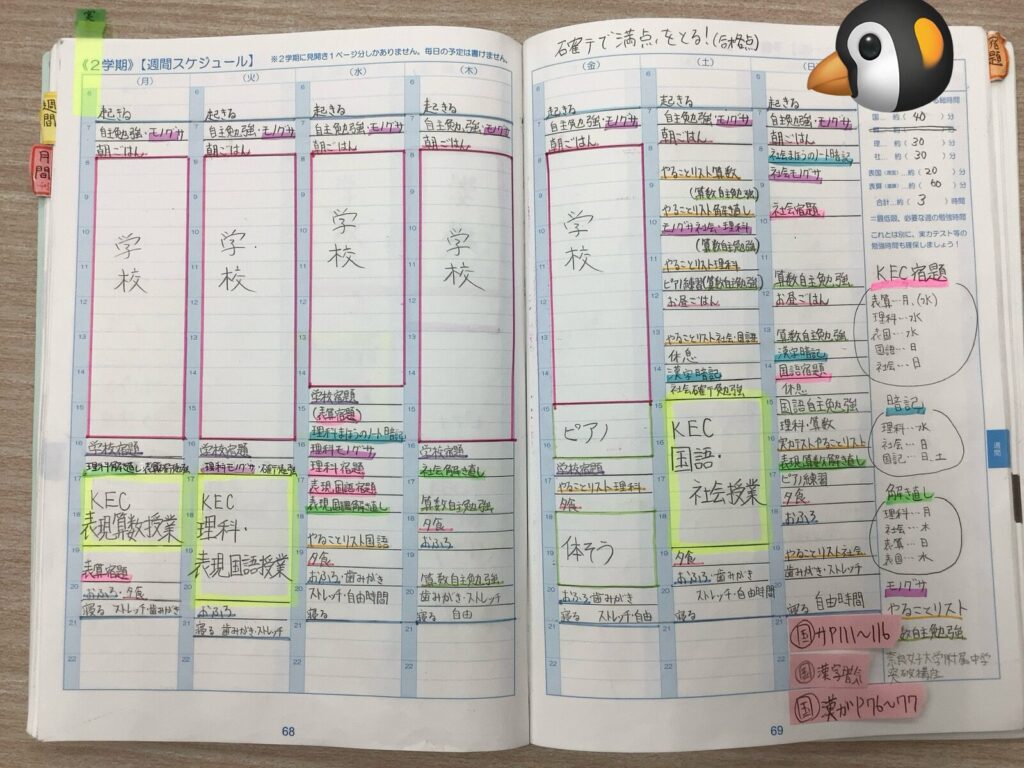 実
週間
月間
宿題
《2学期》【週間スケジュール】
※2学期に見開き1ページ分しかありません。毎日の予定は書けません。
石確テで満点をとる!(合格点)
(月)
起きる
自主勉強・モノグサ
朝ごはん
学校
学校宿題
KEC
表現算数授業
表算宿題
おふろ・夕食
寝る ストレッチ・歯みがき
(火)
起きる
自主勉強・モノグサ
朝ごはん
学校
学校宿題
KEC
理科・
表現国語授業
おふろ
寝る 歯みがき・ストレッチ
(水)
起きる
自主勉強・モノグサ
朝ごはん
学校
学校宿題
(表算宿題)
理科まほうのノート暗記
理科モノグサ
理科宿題
表現国語宿題
表現国語解き直し
やることリスト国語
夕食
おふろ・歯みがき
ストレッチ・自由時間
寝る
(木)
起きる
自主勉強・モノグサ
朝ごはん
学校
学校宿題
社会解き直し
算数自主勉強
夕食
おふろ
算数自主勉強
歯みがき・ストレッチ
自由
寝る
68
(金)
起きる
自主勉強・モノグサ
朝ごはん
学校
ピアノ
学校宿題
やることリスト理科
夕食
体そう
おふろ・歯みがき
寝る ストレッチ・自由
(土)
起きる
自主勉強・モノグサ
朝ごはん
やることリスト算数
(算数自主勉強)
やることリスト解き直し
モノグサ社会・理科
(算数自主勉強)
やることリスト理科
ピアノ練習(算数自主勉強)
お昼ごはん
やることリスト社会・国語
休息
漢字暗記
社会石確テ勉強
KEC
国語・
社会授業
夕食
おふろ・歯みがき
ストレッチ・自由時間
寝る
起きる
自主勉強・モノグサ
朝ごはん
社会まほうのノート暗記
社会モノグサ
社会宿題
算数自主勉強
お昼ごはん
算数自主勉強
漢字暗記
国語宿題
休息
国語自主勉強
理科・算数
実力テストやることリスト
表現算数解き直し
ピアノ練習
夕食
おふろ
やることリスト社会
歯みがき・ストレッチ
寝る 自由時間
国… 約( 40 )分
理… 約( 30 )分
社… 約( 30 )分
表国(表現)…約( 20 )分
表算(表現)…約( 60 )分
合計…約( 3 )時間
=最低限、必要な週の勉強時間
これとは別に、実力テスト等の
勉強時間も確保しましょう!
KEC宿題
表算…月、(水)
理科…水
表国…水
国語…日
社会…日
暗記
理科…水
社会…日
国記…日、土
解き直し
理科…月
社会…木
表算…日
表国…水
モノグサ
やることリスト
数自主勉強
奈良女子大学附属中学
突破講座
週間
国 サP111~116
国 漢字
国 漢がP76~77
69